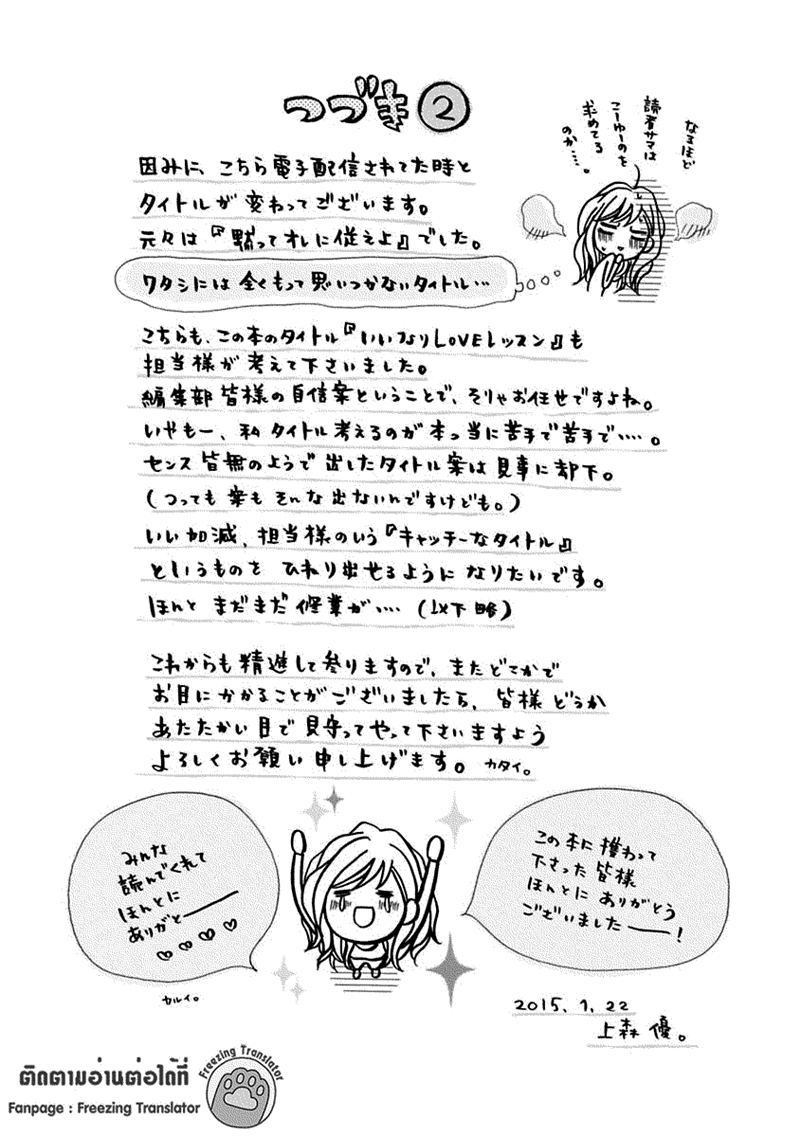 つづき②
なるほど
読者サマは
こーゆーのを
求めてる
のか…。
因みに、こちら電子配信されてた時と
タイトルが変わってございます。
元々は『黙ってオレに従えよ』でした。
ワタシには全くもって思いつかないタイトル…
こちらも、この本のタイトル『いいなりLOVEレッスン』も
担当様が考えて下さいました。
編集部皆様の自信案ということで、そりゃお任せですよね。
いやもー、私タイトル考えるのが本っ当に苦手で苦手で‥‥。
センス皆無のようで出したタイトル案は見事に却下。
(つっても案もそんな出ないんですけども。)
いい加減、担当様のいう『キャッチーなタイトル』
というものを ひねり出せるように なりたいです。
ほんと まだまだ修業が‥‥(以下略)
これからも精進して参りますので、またどこかで
お目にかかることがございましたら、皆様どうか
あたたかい目で見守ってやって下さいますよう
よろしくお願い申し上げます。カタイ。
この本に携わって
下さった皆様
ほんとに ありがとう
ございました――!
みんな
読んでくれて
ほんとに
ありがと――
♡♡♡♡
カルイ。
2015.1.22
上森 優。
ติดตามอ่านต่อได้ที่
Fanpage : Freezing Translator
Freezing Translator